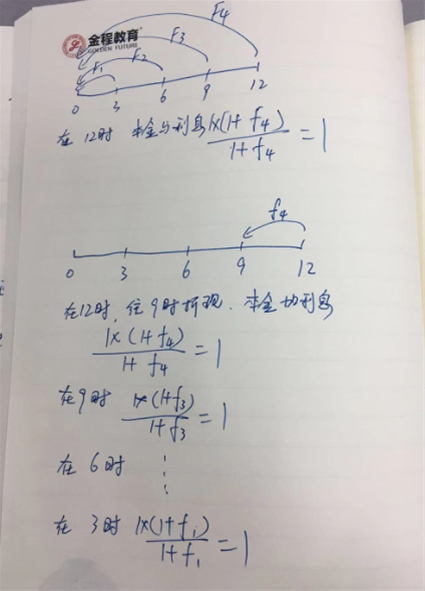 F4
金程教育
GOLDEN FUTURE
F1 F2 F3
0 3 6 9 12
在 12时 本金与利息 1×(1+f4)/1+f4 = 1
f4
0 3 6 9 12
在12时，往9时折现．本金加利息
1×(1+f4)/1+f4 = 1
在9时 1×(1+f3)/1+f3 = 1
在 6时 ⋮
在 3时 1×(1+f1)/1+f1 = 1